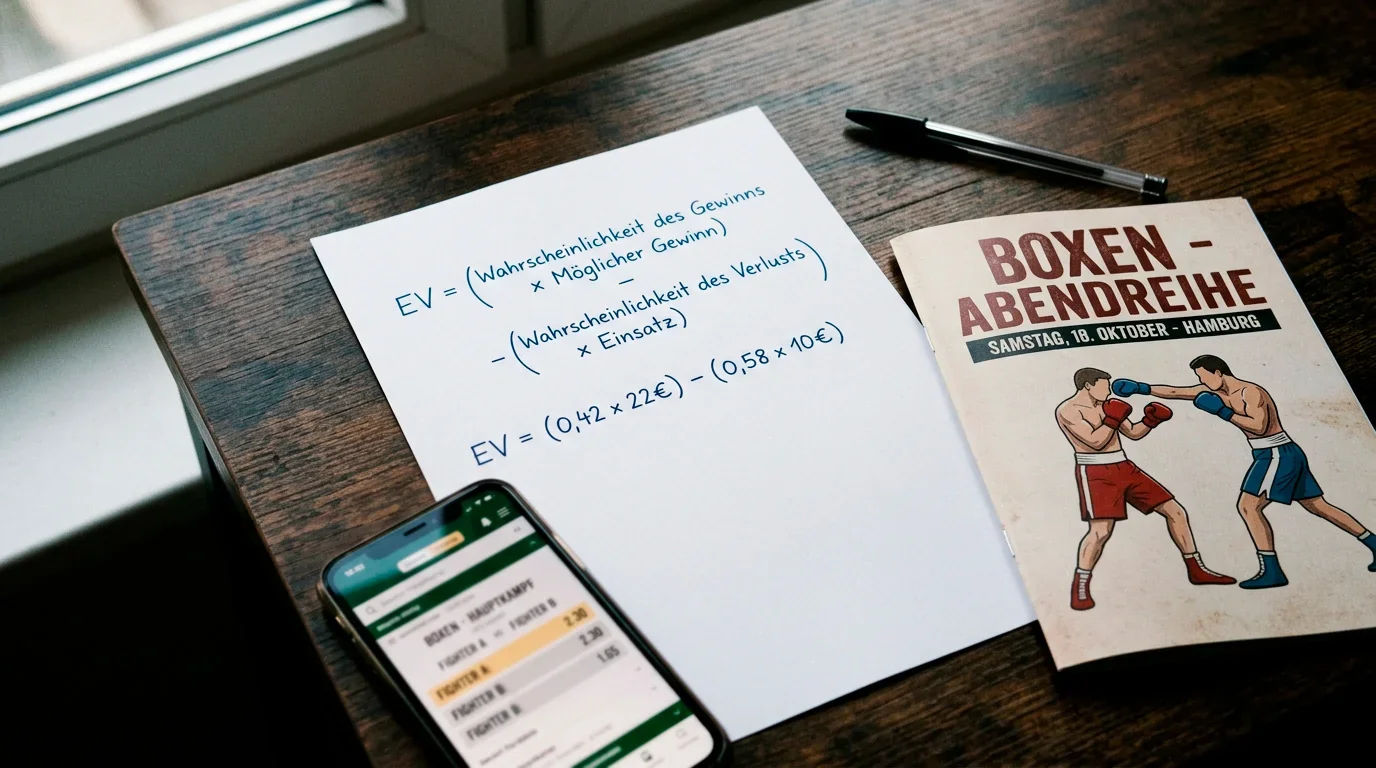 EV = (Wahrscheinlichkeit des Gewinns
× Möglicher Gewinn)
–
– (Wahrscheinlichkeit des Verlusts)
× Einsatz)
EV = (0,42 × 22€) – (0,58 × 10€)
BOXEN –
ABENDREIHE
SAMSTAG, 18. OKTOBER - HAMBURG
BOXEN - HAUPTKAMPF
FIGHTER A vs FIGHTER B
FIGHTER A: 2.30
FIGHTER B: 2.30
FIGHTER B: 1.65